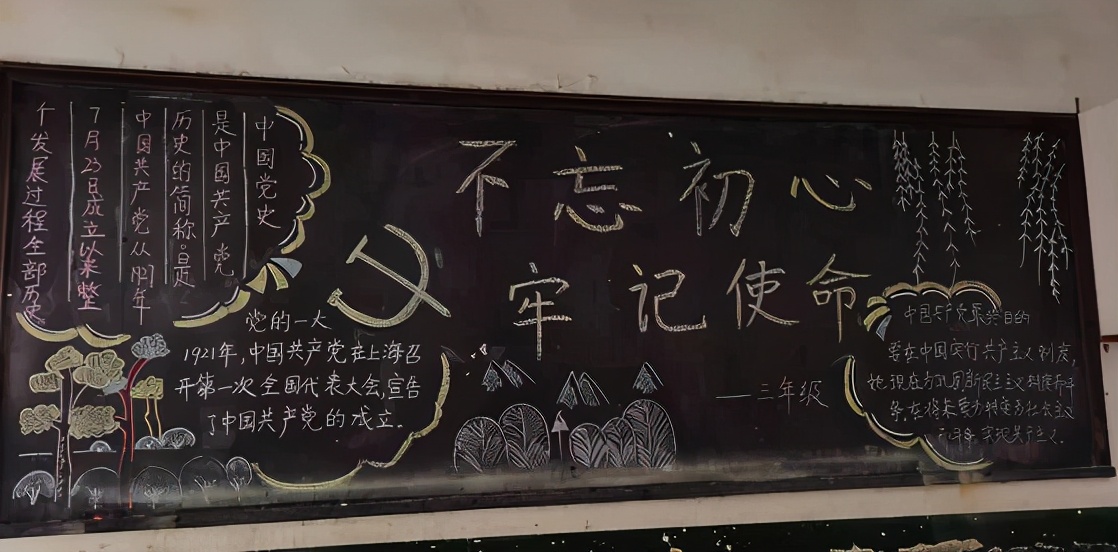 不忘初心
牢记使命
——三年级
中国党史
是中国共产党
历史的简称。是
中国共产党从1921年
7月23日成立以来整
个发展过程全部历史。
党的一大
1921年,中国共产党在上海召
开第一次全国代表大会,宣告
了中国共产党的成立。
中国共产党最终目的
是在中国实行共产主义制度,
现在为巩固新民主主义制度而斗
争,在将来要为转变为社会主义
实现共产主义.